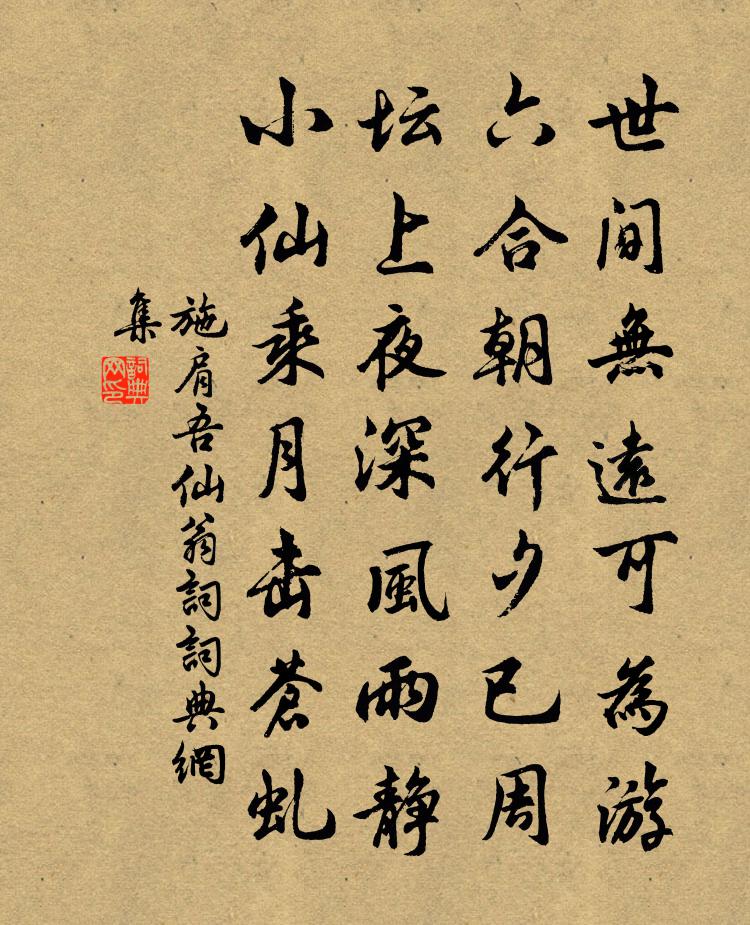 世间無遠可為游
六合朝行夕已周
坛上夜深風雨静
小仙乘月击蒼虬
施肩吾仙翁詞詞典網
集
詞典
网印